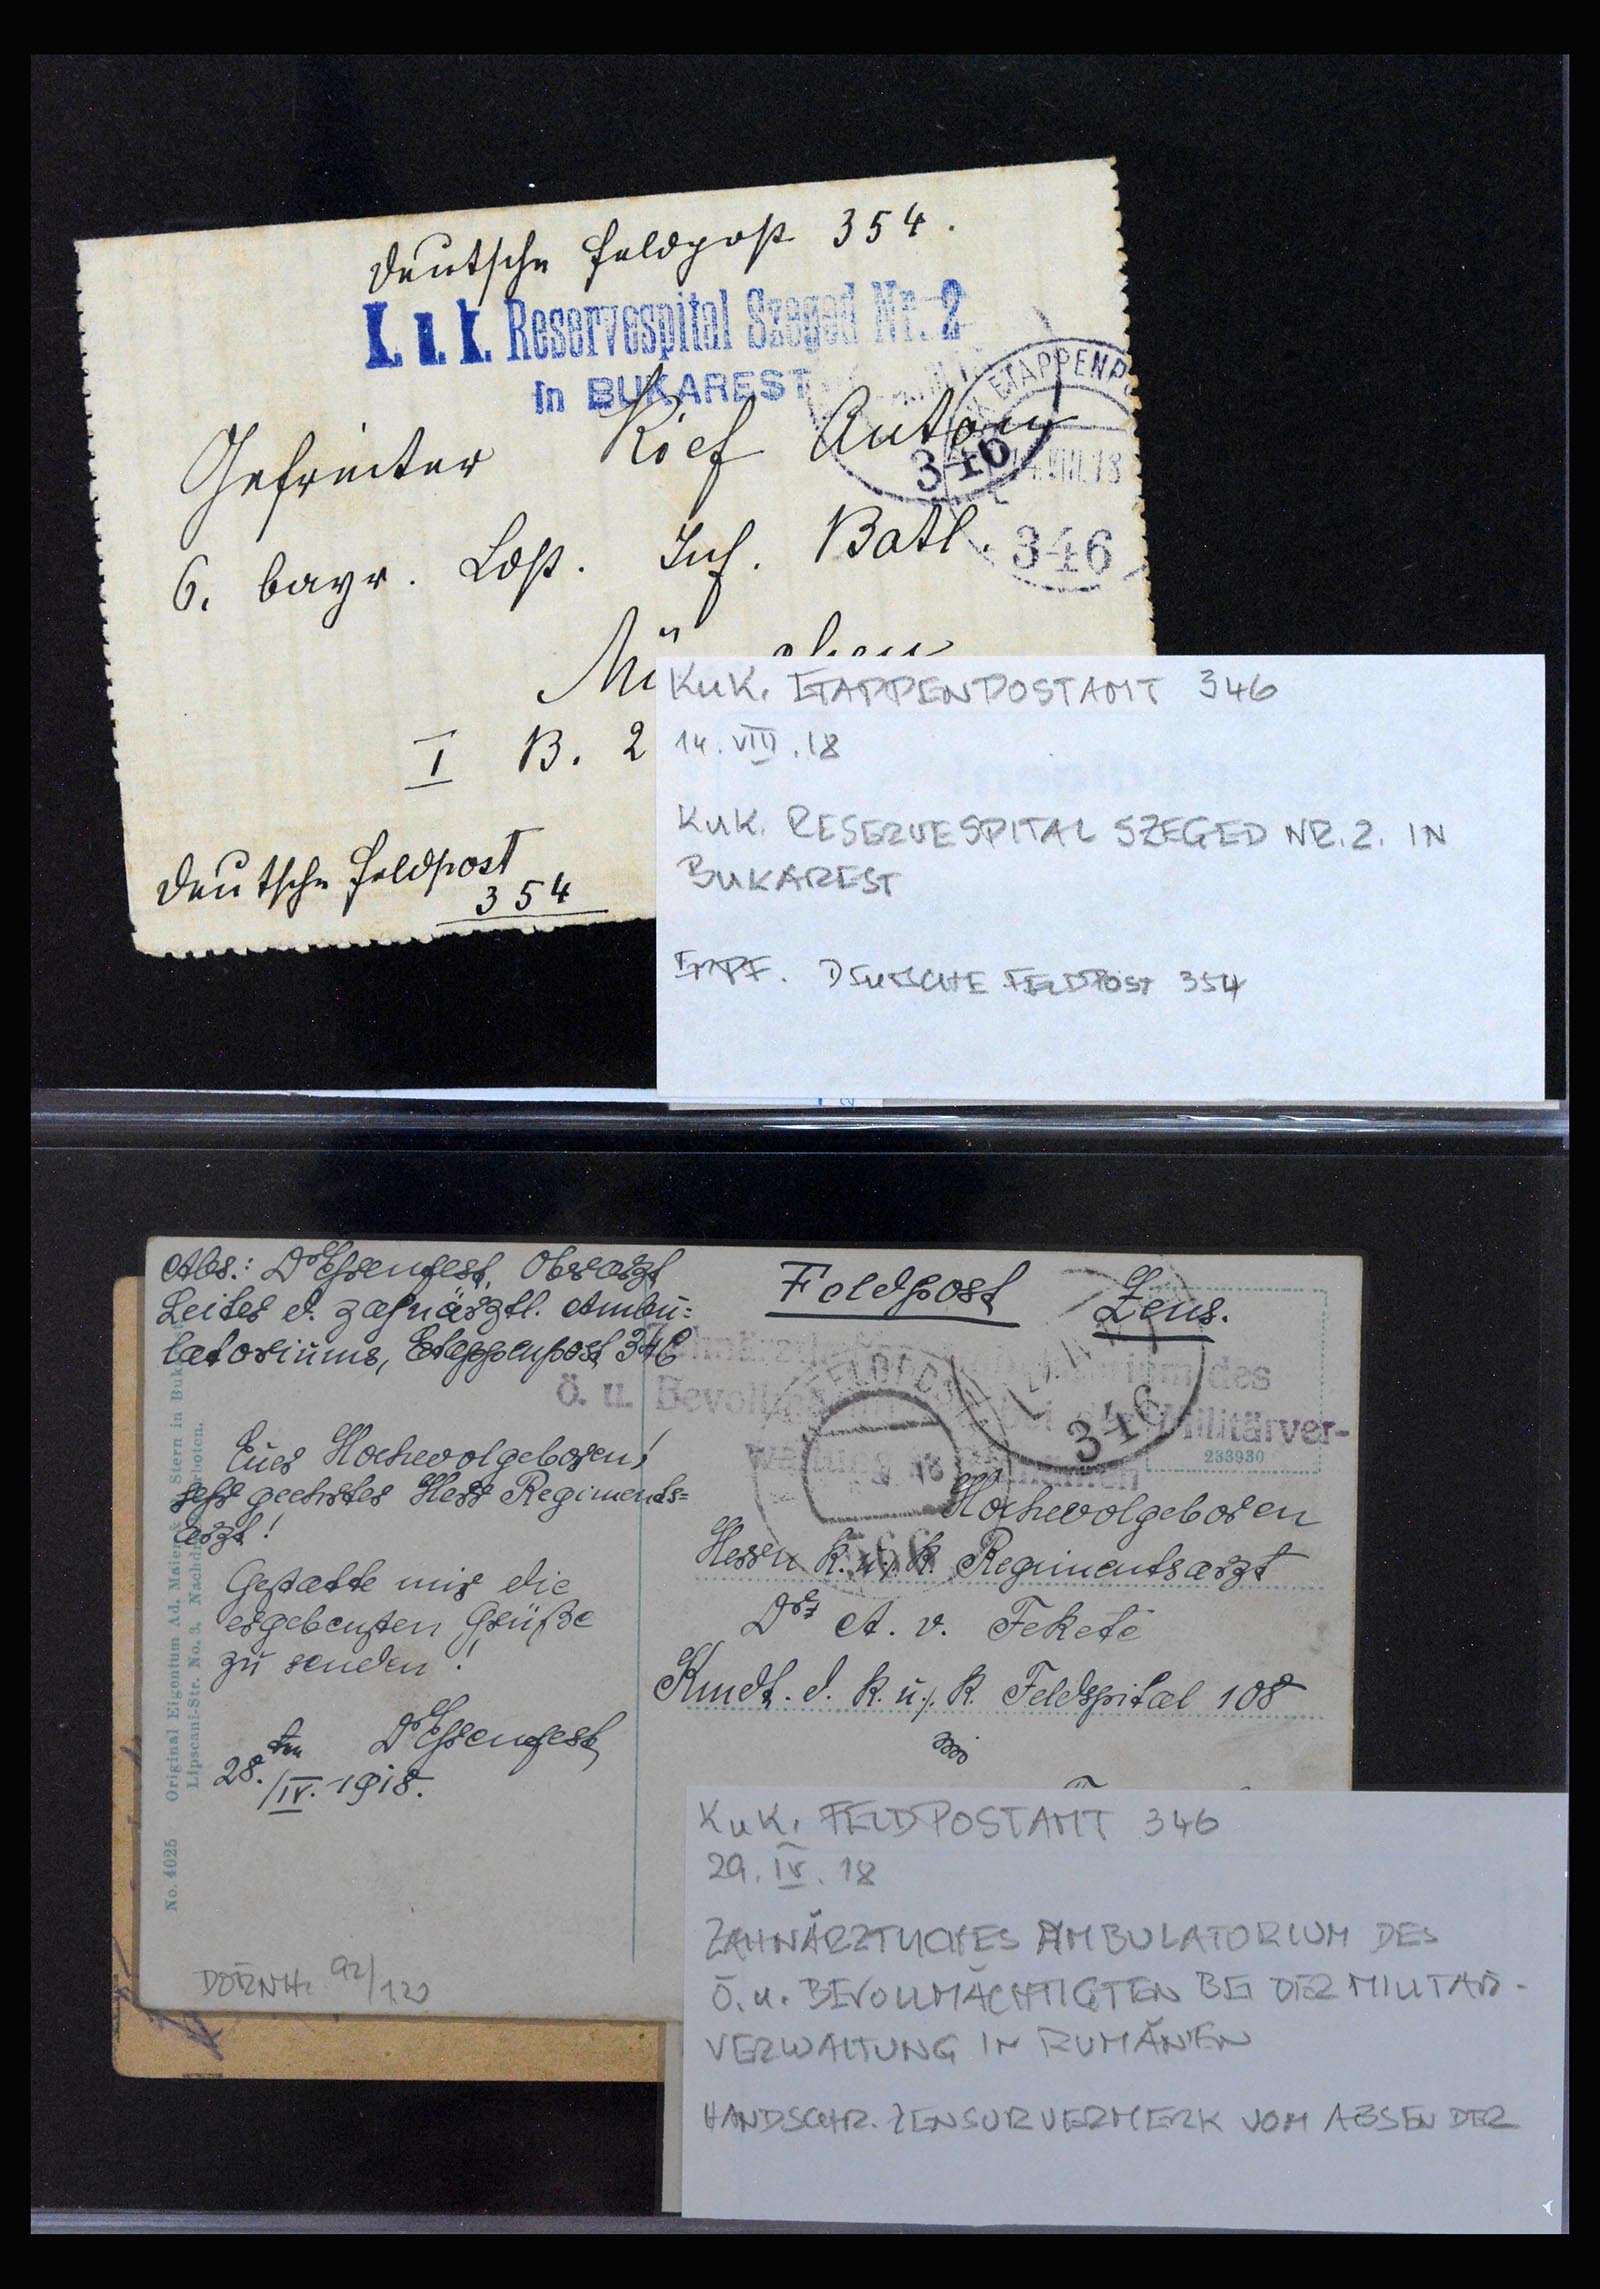 Deutsche Feldpost 354.
K. u. k. Reservespital Szeged Nr. 2
in BUKAREST
ETAPPENP
346
14.VIII.18
346
Gefreiter Kief Anton
6. bayr. Ldst. Inf. Batl.
München
I B. 2
Deutsche Feldpost
354
KuK. ETAPPENPOSTAMT 346
14. VIII. 18
KuK. RESERVESPITAL SZEGED NR. 2. IN
BUKAREST
EMPF. DEUTSCHE FELDPOST 354
Abs.: Dr Ehrenfest, Oberarzt
Leiter d. zahnärztl. Ambu=
latoriums, Etappenpost 346
Euer Hochwolgeboren!
sehr geehrter Herr Regiments=
arzt!
Gestatte mir die
ergebensten Grüße
zu senden!
Dr Ehrenfest
28.ten/IV. 1918.
No. 4025 Original Eigentum Ad. Maier & Stern in Buk
Lipscani-Str. No. 3. Nachdr verboten.
DÖRNH. 92/120
Feldpost Zens.
des
Ö. u. Bevollm bei der Militärver-
346
233930
Hochwolgeboren
Herrn k. u. k. Regimentsarzt
Dr A. v. Fekete
Kmdt. d. k. u. k. Feldspital 108
KuK. FELDPOSTAMT 346
29. IV. 18
ZAHNÄRZTLICHES AMBULATORIUM DES
Ö. u. BEVOLLMÄCHTIGTEN BEI DER MILITÄR-
VERWALTUNG IN RUMÄNIEN
HANDSCHR. ZENSURVERMERK VOM ABSENDER